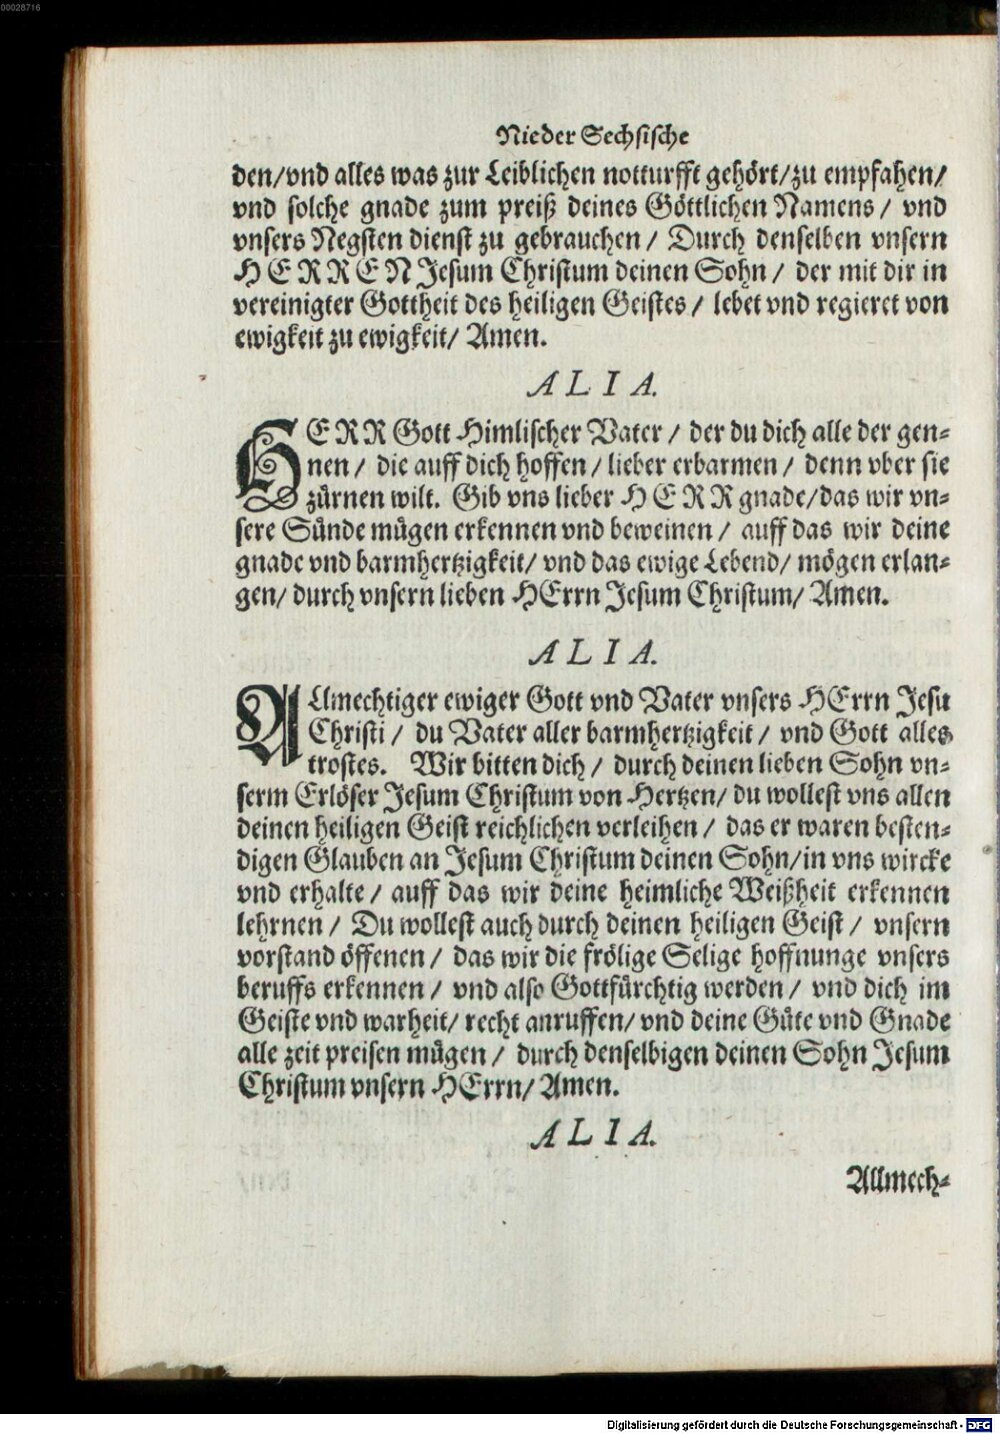 00028716
Nieder Sechsische
den/vnd alles was zur Leiblichen notturfft gehört/zu empfahen/
vnd solche gnade zum preiß deines Göttlichen Namens / vnd
vnsers Negsten dienst zu gebrauchen / Durch denselben vnsern
HERREN Jesum Christum deinen Sohn / der mit dir in
vereinigter Gottheit des heiligen Geistes / lebet vnd regieret von
ewigkeit zu ewigkeit/ Amen.
ALIA.
HERR Gott Himlischer Vater / der du dich alle der gen-
nen / die auff dich hoffen / lieber erbarmen / denn vber sie
zürnen wilt. Gib vns lieber HERR gnade/das wir vn-
sere Sünde mügen erkennen vnd beweinen / auff das wir deine
gnade vnd barmhertzigkeit/ vnd das ewige Lebend/ mögen erlan-
gen/ durch vnsern lieben HErrn Jesum Christum/ Amen.
ALIA.
ALlmechtiger ewiger Gott vnd Vater vnsers HErrn Jesu
Christi / du Vater aller barmhertzigkeit / vnd Gott alles
trostes. Wir bitten dich / durch deinen lieben Sohn vn-
serm Erlöser Jesum Christum von Hertzen/ du wollest vns allen
deinen heiligen Geist reichlichen verleihen / das er waren besten-
digen Glauben an Jesum Christum deinen Sohn/in vns wircke
vnd erhalte / auff das wir deine heimliche Weißheit erkennen
lehrnen / Du wollest auch durch deinen heiligen Geist / vnsern
vorstand öffenen / das wir die frölige Selige hoffnunge vnsers
beruffs erkennen / vnd also Gottfürchtig werden / vnd dich im
Geiste vnd warheit/ recht anruffen/ vnd deine Güte vnd Gnade
alle zeit preisen mügen / durch denselbigen deinen Sohn Jesum
Christum vnsern HErrn/ Amen.
ALIA.
Allmech-
Digitalisierung gefördert durch die Deutsche Forschungsgemeinschaft - DFG